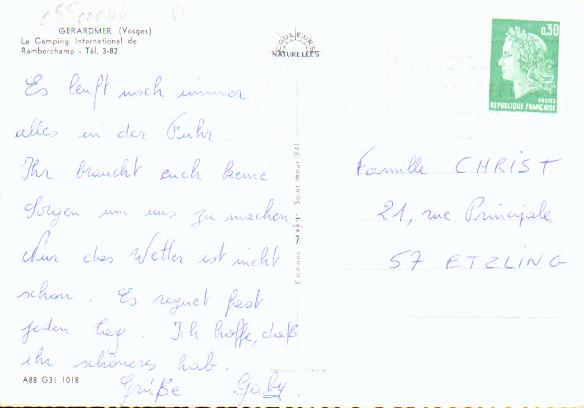 GERARDMER (Vosges)
Le Camping International de
Ramberchamp - Tél. 3-82
COULEURS
NATURELLES
0,30
POSTES
REPUBLIQUE FRANÇAISE
Es läuft noch immer
alles in der Fuhr.
Ihr braucht euch keine
Sorgen um uns zu machen.
Nur das Wetter ist nicht
schön. Es regnet fast
jeden tag. Ich hoffe, daß
ihr schöneres hab.
Grüße Gaby.
Famille CHRIST
21, rue Principale
57 ETZLING
Editions
Saint-Maur (94)
A88 G31 1018